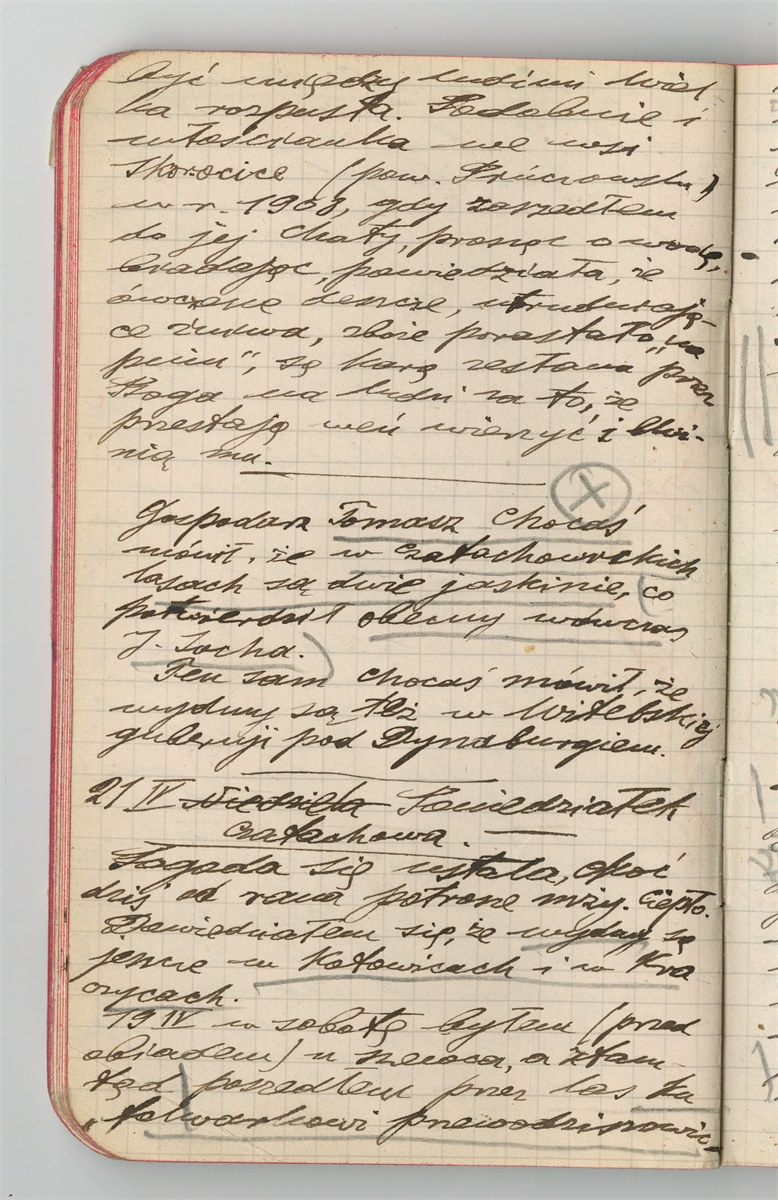 być między ludźmi wiel
ka rozpusta. Podobnie i
włościanka we wsi
Skorocice (pow. Pińczowski)
w r. 1908, gdy zaszedłem
do jej chaty, prosząc o wodę,
biadając, powiedziała, że
ówczesne deszcze, utrudniają-
ce żniwa, zboże porastało „na
pniu", są karą zesłaną przez
Boga na ludzi za to, że
przestają weń wierzyć i bluź-
nią mu.
Gospodarz Tomasz Chocaś
mówił, że w czatachowskich
lasach są dwie jaskinie, co
potwierdził obecny wówczas
J. Socha.
Ten sam Chocaś mówił, że
wydmy są też w Witebskiej
gubernji pod Dynaburgiem.
21 IV Niedziela Poniedziałek
Czatachowa.
Pogoda się ustala, choć
dziś od rana potrosze mży. Ciepło.
Dowiedziałem się, że wydmy są
jeszcze w Kotowicach i w Kra
czycach.
19 IV w sobotę byłem (przed
obiadem) u szewca, a stam
tąd poszedłem przez las ku
„folwarkowi przewodziszowic-